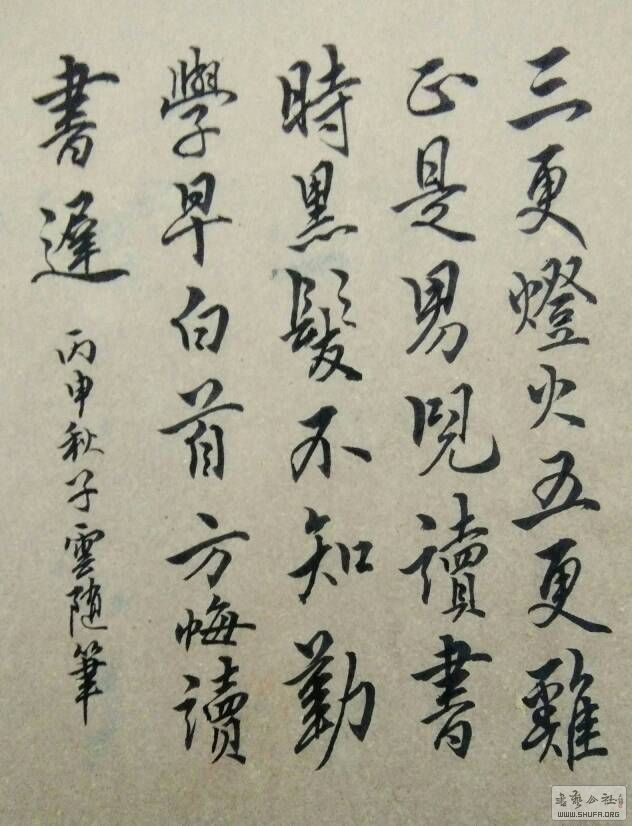 三更燈火五更雞
正是男児讀書
時黑髮不知勤
學早白首方悔讀
書遲
丙申秋子雲隨筆
書藝公社
WWW.SHUFA.ORG